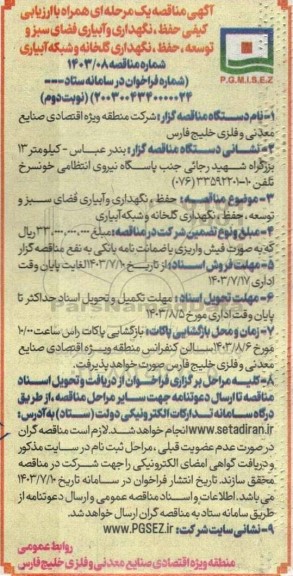 آگهی مناقصه یک مرحله ای همراه با ارزیابی
کیفی حفظ ، نگهداری و آبیاری فضای سبز و
توسعه ، حفظ ، نگهداری گلخانه و شبکه آبیاری
شماره مناقصه ۱۴۰۳/۰۸
(شماره فراخوان در سامانه ستاد ---
۲۰۰۳۰۰۴۳۴۰۰۰۰۰۲۴) (نوبت دوم)
P.G.M.I.S.E.Z
۱-نام دستگاه مناقصه گزار : شرکت منطقه ویژه اقتصادی صنایع
معدنی و فلزی خلیج فارس
۲-نشانی دستگاه مناقصه گزار : بندر عباس - کیلومتر ۱۳
بزرگراه شهید رجائی جنب پاسگاه نیروی انتظامی خونسرخ
تلفن ۱۰-۳۳۵۹۲۳۰۱ (۰۷۶)
۳-موضوع مناقصه : حفظ ، نگهداری و آبیاری فضای سبز و
توسعه ، حفظ ، نگهداری گلخانه و شبکه آبیاری
۴-مبلغ و نوع تضمین شرکت در مناقصه : مبلغ ۳۳,۰۰۰,۰۰۰,۰۰۰ ریال
که به صورت فیش واریزی یا ضمانت نامه بانکی به نفع مناقصه گزار
۵-مهلت فروش اسناد : از تاریخ ۱۴۰۳/۷/۱۰ لغایت پایان وقت
اداری ۱۴۰۳/۷/۱۷
۶-مهلت تحویل اسناد : مهلت تکمیل و تحویل اسناد حداکثر تا
پایان وقت اداری مورخ ۱۴۰۳/۸/۵
۷-زمان و محل بازگشایی پاکات : بازگشایی پاکات راس ساعت ۱۰/۰۰
مورخ ۱۴۰۳/۸/۶ سالن کنفرانس منطقه ویژه اقتصادی صنایع
معدنی و فلزی خلیج فارس صورت خواهد پذیرفت.
۸-کلیه مراحل برگزاری فراخوان از دریافت و تحویل اسناد
مناقصه تا ارسال دعوتنامه جهت سایر مراحل مناقصه ، از طریق
درگاه سامانه تدارکات الکترونیکی دولت (ستاد) به آدرس :
www.setadiran.ir انجام خواهد شد. لازم است مناقصه گران
در صورت عدم عضویت قبلی ، مراحل ثبت نام در سایت مذکور
و دریافت گواهی امضای الکترونیکی را جهت شرکت در مناقصه
محقق سازند. تاریخ انتشار فراخوان در سامانه تاریخ ۱۴۰۳/۷/۱۰
می باشد. اطلاعات و اسناد مناقصه عمومی و ارسال دعوتنامه از
طریق سامانه ستاد به مناقصه گران ارسال خواهد شد.
۹-نشانی سایت شرکت : www.PGSEZ.ir
روابط عمومی
منطقه ویژه اقتصادی صنایع معدنی و فلزی خلیج فارس